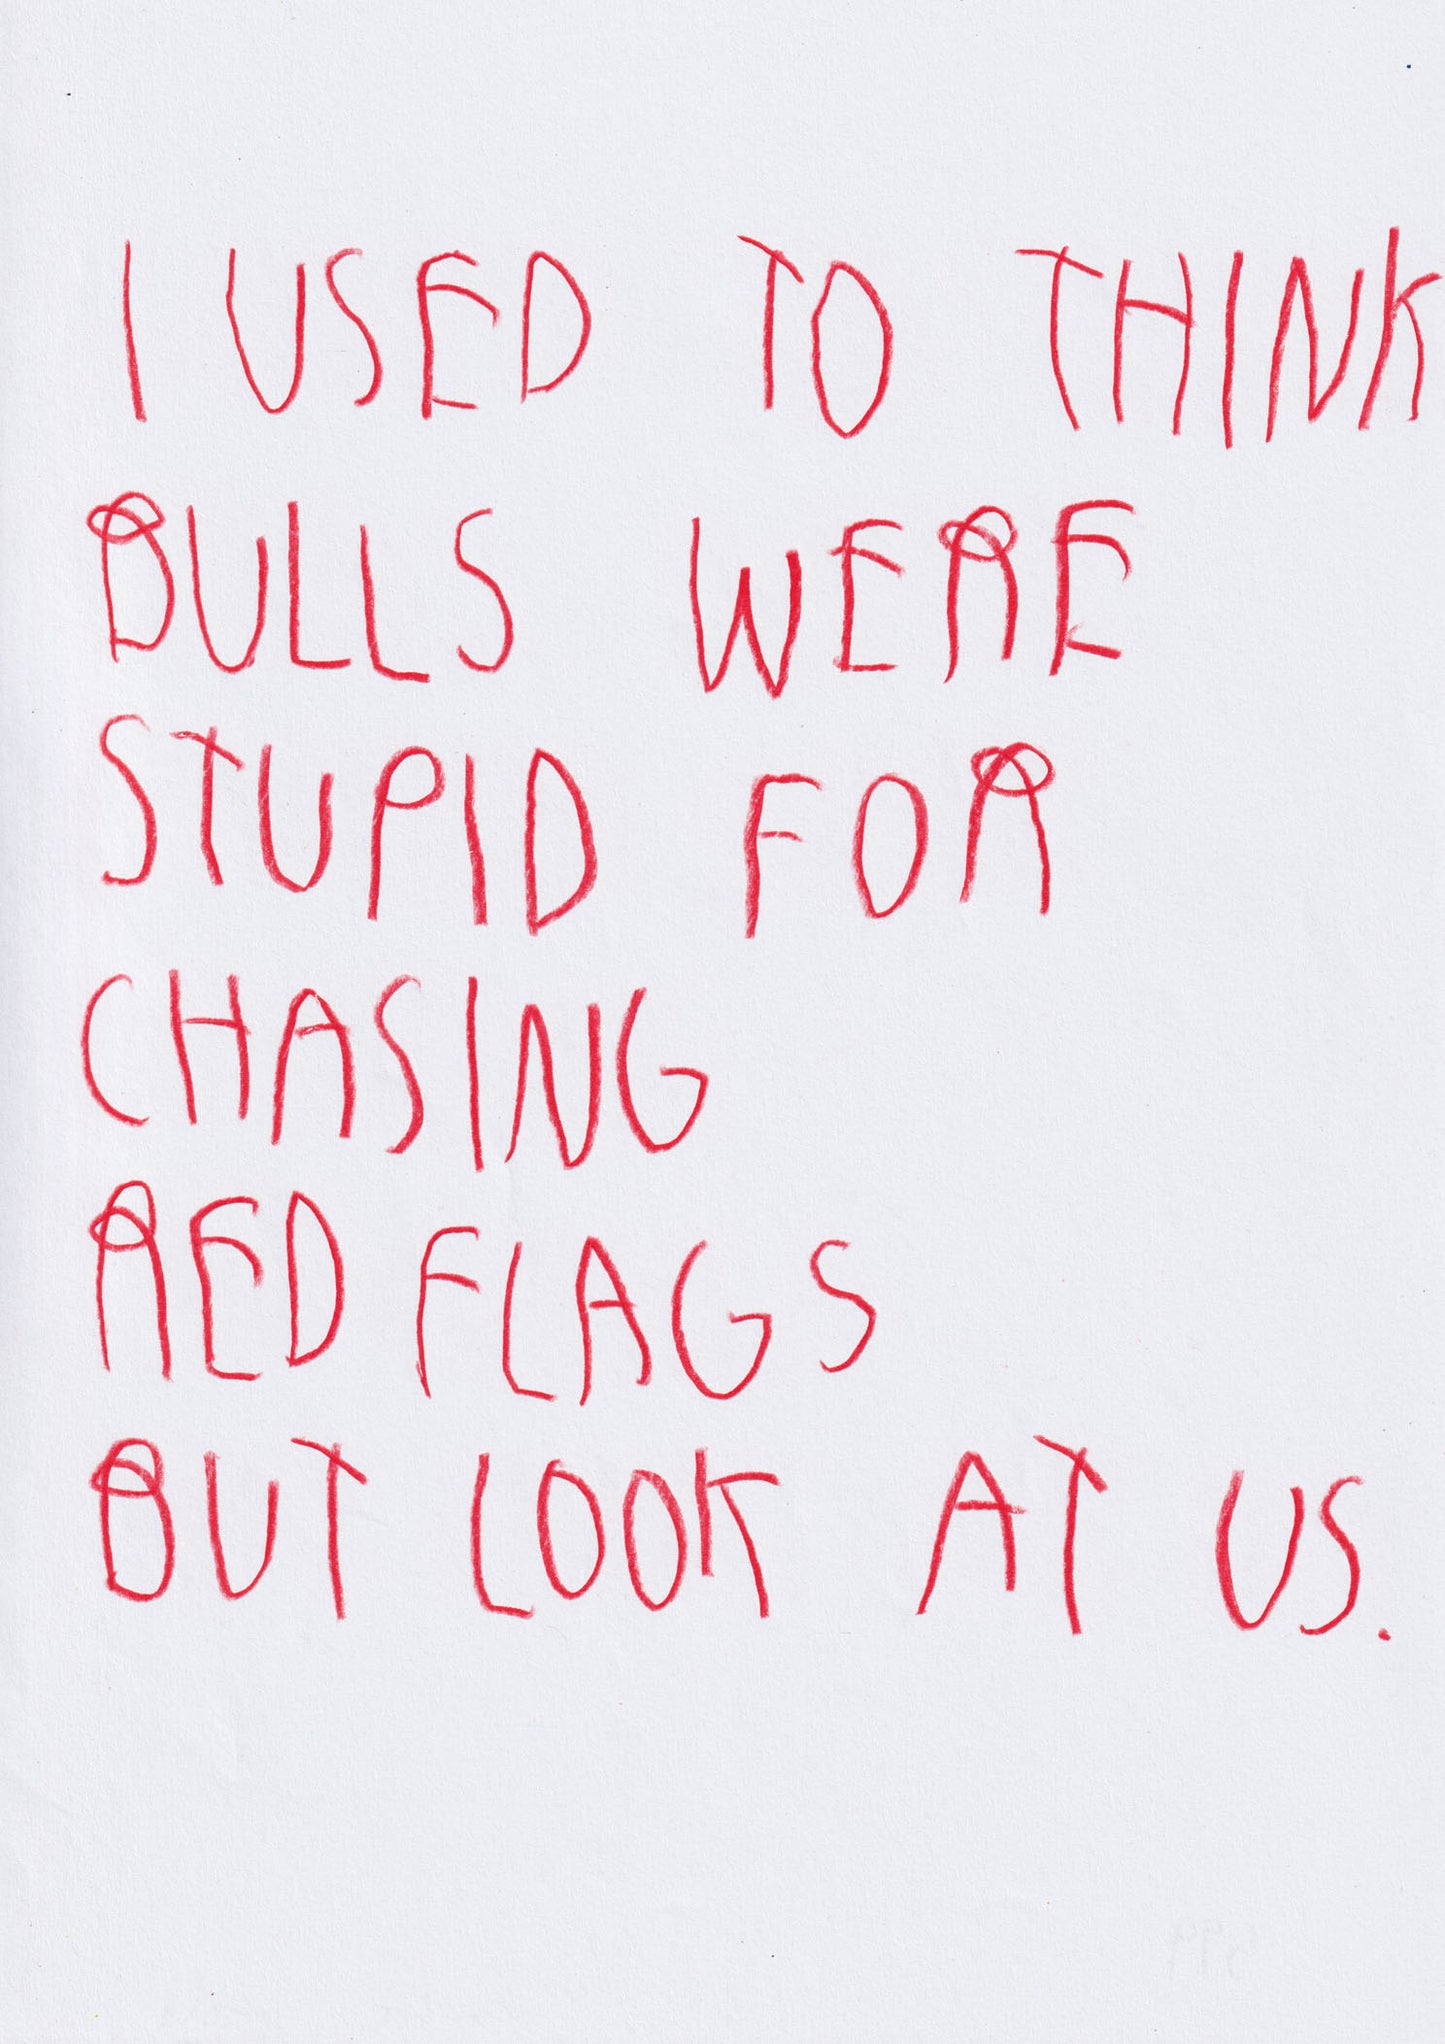 I USED TO THINK
BULLS WERE
STUPID FOR
CHASING
RED FLAGS
BUT LOOK AT US.